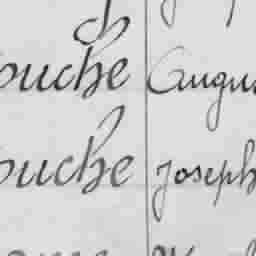 ouche Augus
ouche Joseph